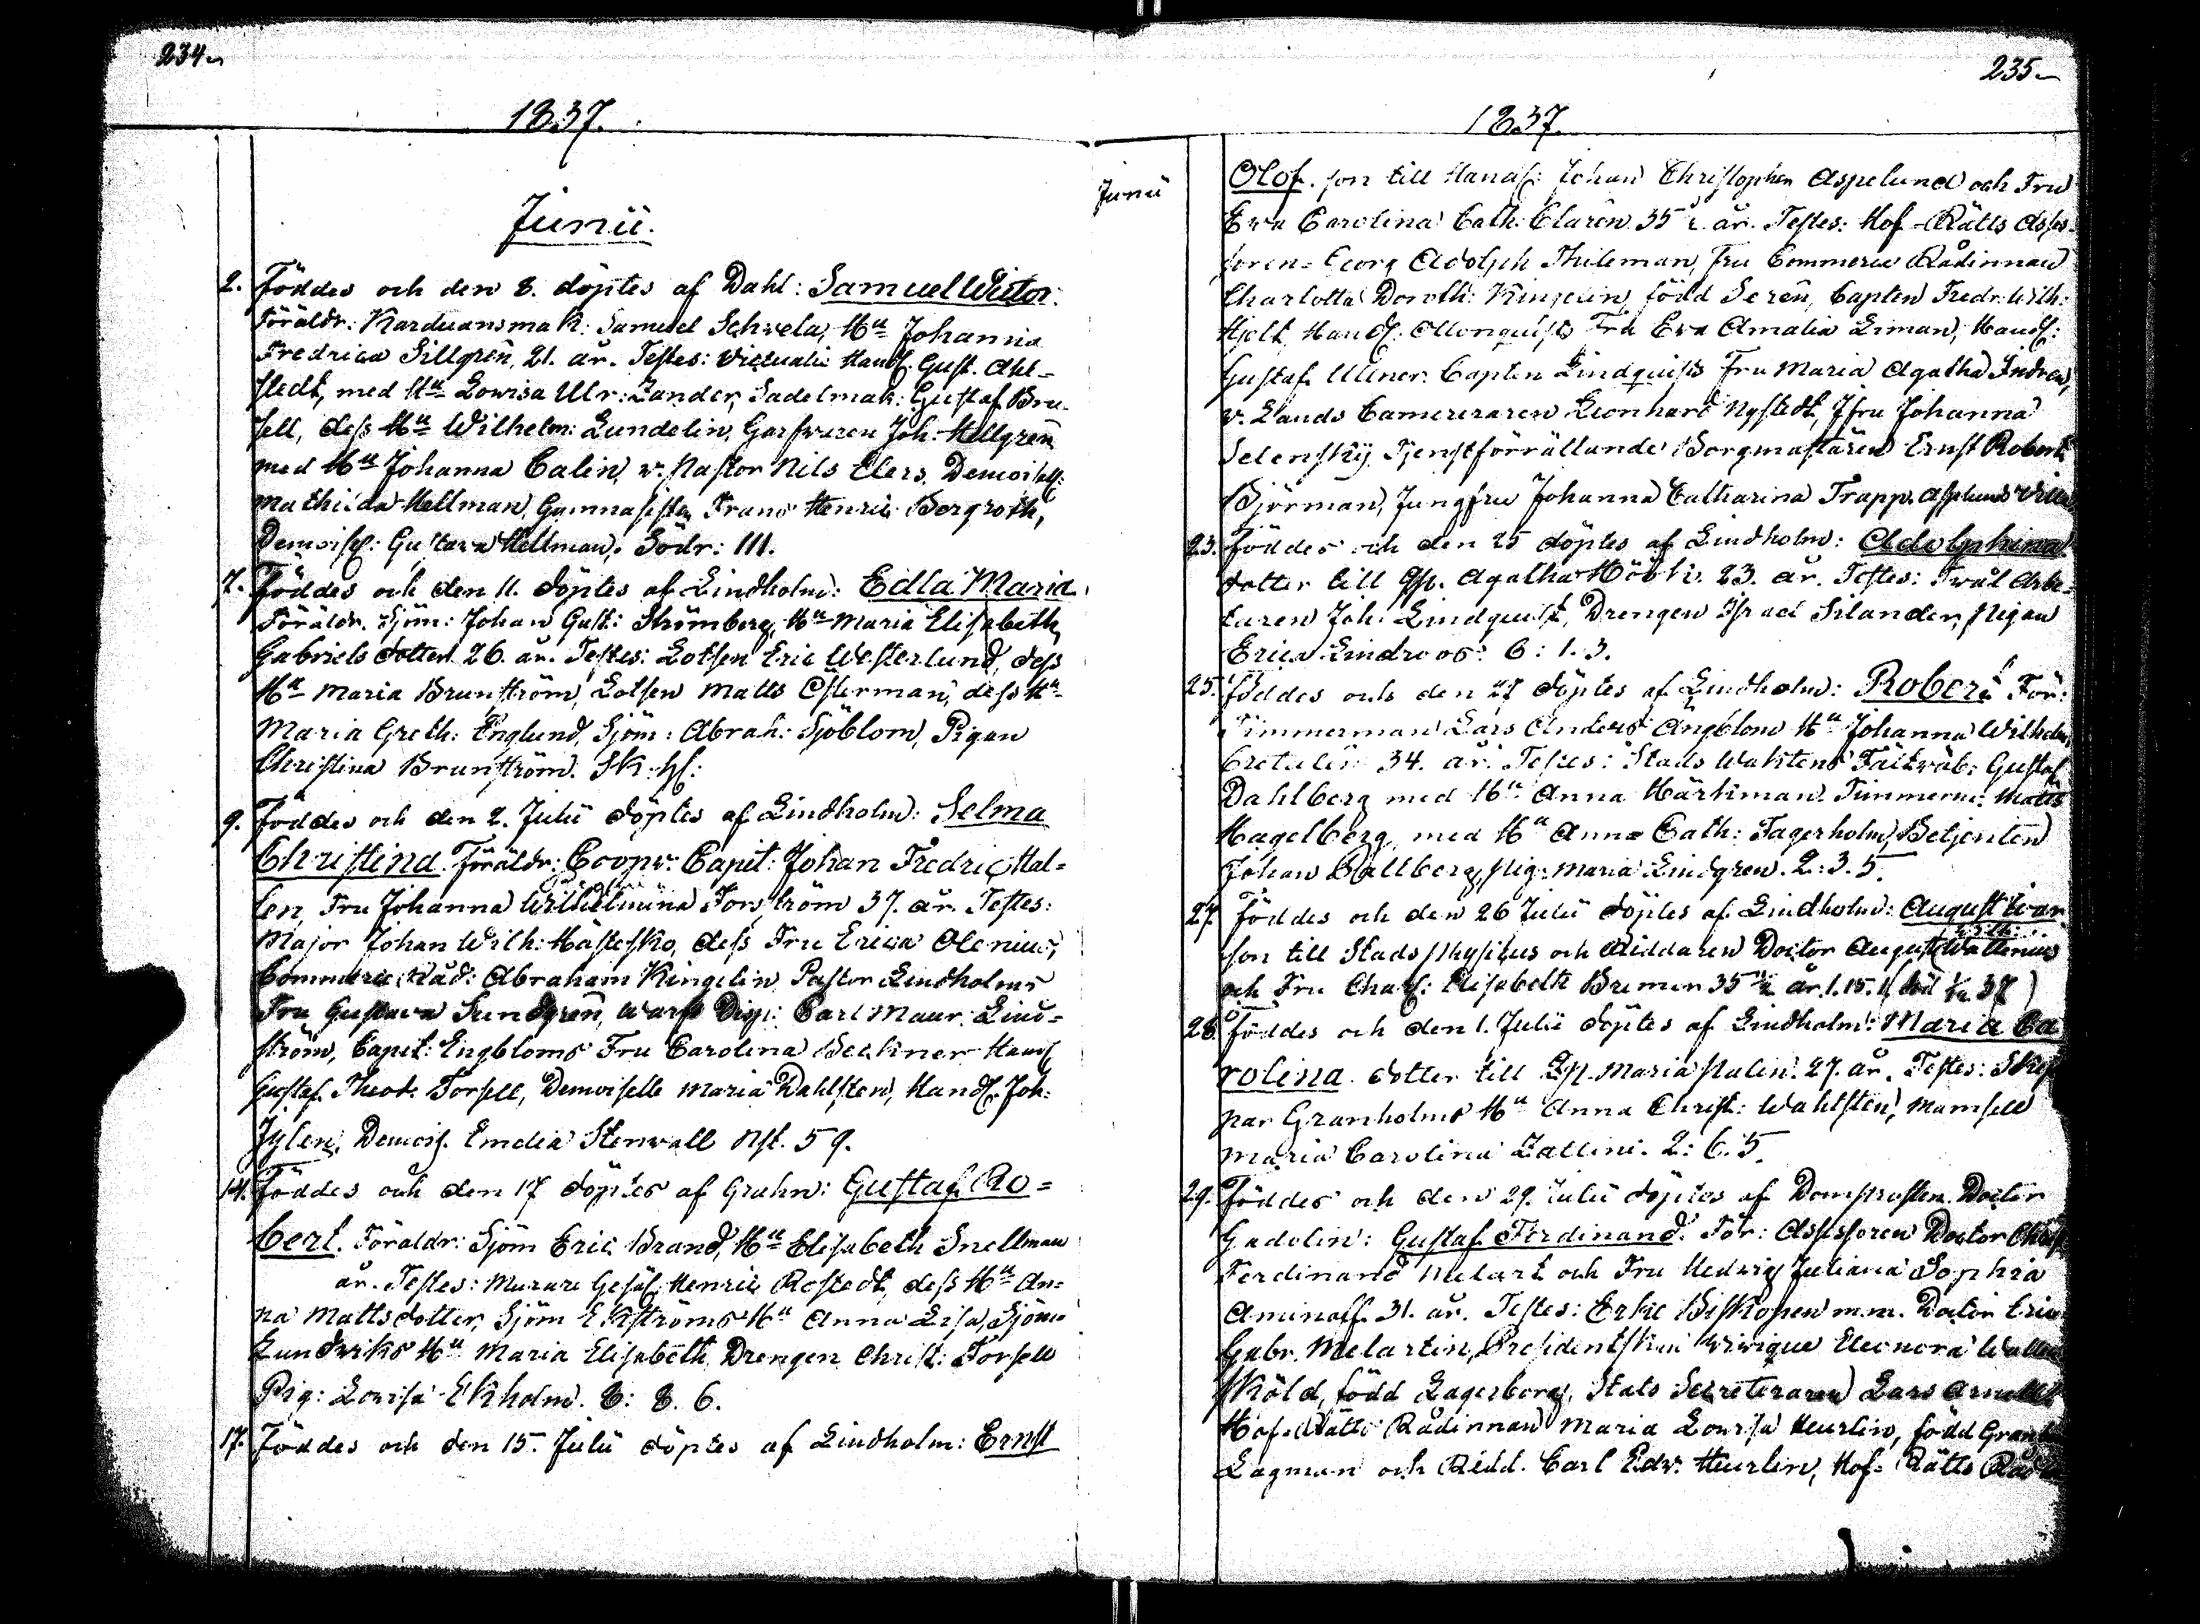 234
1837.
Junii.
2. Föddes och den 8. döptes af Dahl: Samuel Victor.
Föräldr: Karduansmak: Samuel Schvela, Hu Johanna
Fredrica Sillgrén, 21. år. Testes: Victualie Handl. Gust. Ahl-
stedt, med Hu Lovisa Ulr: Zander, Sadelmak: Gustaf Bru-
sell, dess Hu Wilhelm: Lundelin, Garfvaren Joh: Hellgrén
med Hu Johanna Calin, v. Pastor Nils Elers, Demoisell:
Mathilda Hellman, Gymnasisten Frans Henric Bergroth,
Demoisell: Gustava Hellman. Södr: 111.
7. Föddes och den 11. döptes af Lindholm: Edla Maria.
Föräldr. Sjöm: Johan Gust: Strömberg, Hu Maria Elisabeth
Gabriels dotter 26. år. Testes: Lotsen Eric Westerlund, dess
Hu Maria Brunström, Lotsen Matts Österman, dess Hu
Maria Greth: Englund, Sjöm: Abrah: Sjöblom, Pigan
Christina Brunström.
9. Föddes och den 2. Julii döptes af Lindholm: Selma
Christina. Föräldr: Coopv: Capit: Johan Fredric Hal-
len, Fru Johanna Wilhelmina Forström 37. år. Testes:
Major Johan Wilh: Hästesko, dess Fru Erica Olenius,
Commerce Råd: Abraham Kingelin, Pastor Lindholms
Fru Gustava Sundgrén, Warfs Disp: Carl Maur: Lind-
ström, Capit: Engbloms Fru Carolina Handl
Gustaf Theod. Forsell, Demoiselle Maria Dahlsten, Handl. Joh:
Jylen, Demois. Emelia Stenvall Nst. 59.
14. Föddes och den 17 döptes af Grahn: Gustaf Ro-
bert. Föräldr: Sjöm Eric Brand, Hu Elisabeth Snellman
år. Testes: Murare Gesäl. Henric Rostedt, dess Hu An-
na Mattsdotter, Sjöm Ekströms Hu Anna Lisa, Sjöm:
Lundviks Hu Maria Elisabeth, Drengen Christ: Forsell
Pig: Lovisa Ekholm. 8: 8. 6.
17. Föddes och den 15. Julii döptes af Lindholm: Ernst
235
1837.
Junii
Olof. son till Handl: Johan Christopher Aspelund och Fru
Eva Carolina Cath: Clarén 35 år. Testes: Hof-Rätts Asses-
soren Georg Adolph Thileman, Fru Commerce Rådinnan
Charlotta Doroth: Kingelin, född Serén, Capten Fredr: Wilh:
Hjelt, Handl. Fru Eva Amalia Ziman, Handl:
Gustaf Ullner. Capten Lindquists Fru Maria Agatha
v. Lands Camereraren Leonhard Nystedt, Jfru Johanna
Selenskij, Tjenstförrättande Borgmästaren Ernst Robert
Björman, Jungfru Johanna Catharina Trapp.
23. Föddes och den 25 döptes af Lindholm: Adolphina
dotter till Qsp. Agatha 23. år. Testes: Twål Arbe-
taren Joh: Lindquist, Drengen Israel Silander, Pigan
Erica Lindroos: 6: 1. 3.
25. Föddes och den 27 döptes af Lindholm: Robert För:
Timmerman Lars Anders Ängblom Hu Johanna Wilhelm:
34. år. Testes: Stads Waktens Fältwäb: Gustaf
Dahlberg med Hu Anna Härkman. Timmerm: Matts
Hagelberg, med Hu Anna Cath: Fagerholm, Betjenten
Johan Rallberg, Pig: Maria Lindgren. 2: 3. 5.
27. Föddes och den 26 Julii döptes af Lindholm: August Ivar
son till Stads Physicus och Riddaren Doctor August Wilh: Wallenius
och Fru Charl: Elisabeth Bremer 35 år. 1. 15. 1
28. Föddes och den 1. Julii döptes af Lindholm: Maria Ca
rolina. dotter till Qsp. Maria Palin. 27. år. Testes: Skep
par Granholms Hu Anna Christ: Wahlsten, Mamsell
Maria Carolina Zallini. 2: 6. 5.
29. Föddes och den 29. Julii döptes af Domprosten Doctor
Gadolin: Gustaf Ferdinand. För: Assessoren Doctor
Ferdinand Melart och Fru Hedwig Juliana Sophia
Aminoff. 31. år. Testes: Erke Biskopen m.m. Doctor Eric
Gabr. Melartin, Presidentskan Eleonora Wallen
sköld, född Lagerborg, Stats Secreteraren Lars
Hof-Rätts Rådinnan Maria Lovisa Heurlin, född
Lagman och Ridd. Carl Edv: Heurlin, Hof-Rätts